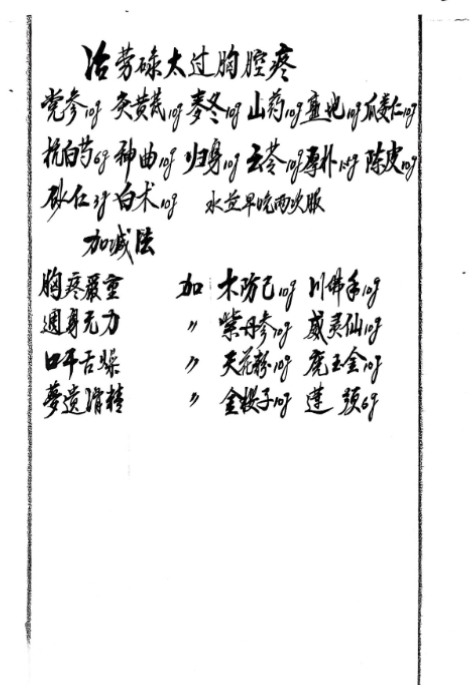 治劳碌太过胸腔疼
党参10g 炙黄芪10g 麦冬10g 山药10g 盐地10g 瓜蒌仁10g
抗白芍6g 神曲10g 归身10g 云苓10g 厚朴1.5g 陈皮10g
砂仁3g 白术10g 水煎早晚两次服
加减法
胸疼严重 加 木防己10g 川佛手10g
週身无力 〃 紫丹参10g 威灵仙10g
口干舌燥 〃 天花粉10g 广玉金10g
夢遗滑精 〃 金樱子10g 莲须6g